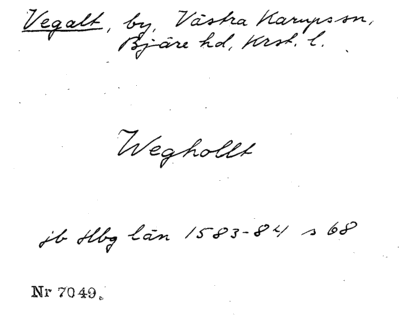 Vegalt, by, Västra Karups sn,
Bjäre hd, Krst. l.
Weghollt
jb Hbg län 1583-84 s 68
Nr 7049.